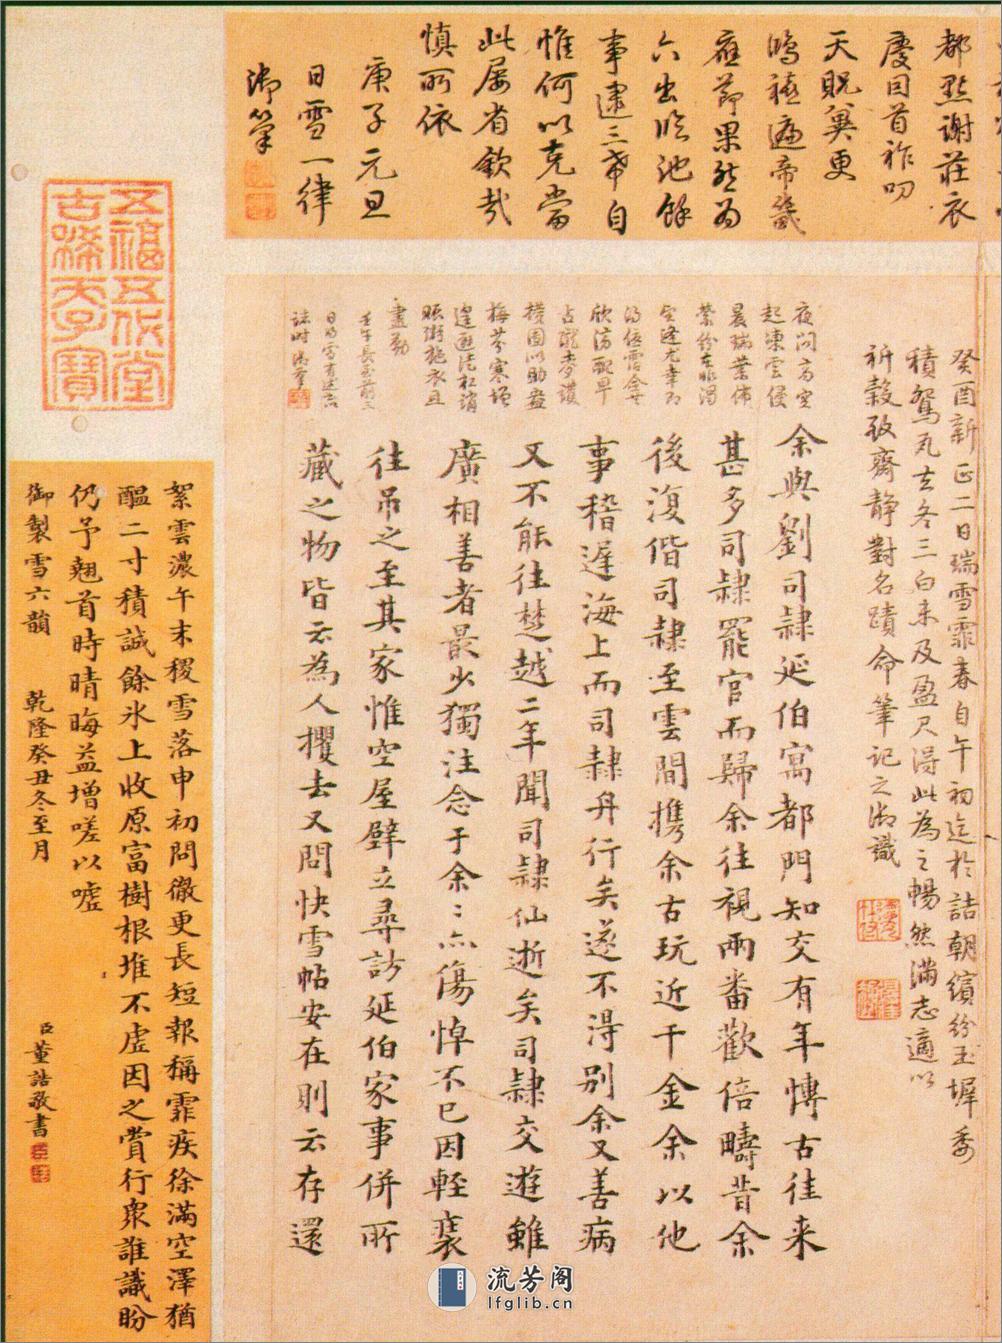 都點謝莊衣
慶因首祚叨
天貺冀更
鳴禧遍帝畿
應節果然為
六出臨池餘
事逮三希自
惟何以克當
此屢省欽哉
慎所依
庚子元旦
日雪一律
御筆
癸酉新正二日瑞雪霏春自午初迄於詰朝繽紛玉墀委
積鴛瓦去冬三白未及盈尺得此為之暢然滿志適以
祈穀致齋靜對名蹟命筆記之御識
夜問高空
起凍雲侵
晨瑞葉佈
占隴麥護
梅芬寒
賑粥施衣且
盡勤
壬午長至前三
誌時御筆
余與劉司隸延伯寓都門知交有年博古往来
甚多司隸罷官而歸余往視兩番歡倍疇昔余
後復偕司隸至雲間携余古玩近千金余以他
事稽遲海上而司隸舟行矣遂不得别余又善病
又不能往楚越二年聞司隸仙逝矣司隸交遊雖
廣相善者最少獨注念于余二亦傷悼不已因輕裝
往吊之至其家惟空屋壁立尋訪延伯家事併所
藏之物皆云為人攫去又問快雪帖安在則云存還
五福五代堂
古稀天子寶
絮雲濃午未稷雪落申初問徹更長短報稱霏疾徐滿空澤猶
醞二寸積誠餘氷上收原富樹根堆不虛因之賞行衆誰識盼
仍予翹首時晴晦益增嗟以噓
御製雪六韻 乾隆癸丑冬至月
臣董誥敬書
流芳阁
lfglib.cn